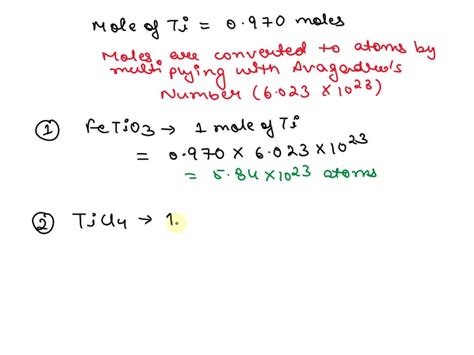 Mole of Ti = 0.970 moles
Moles are converted to atoms by
multiplying with Avagadro's
Number (6.023 × 10²³)
① FeTiO₃ → 1 mole of Ti
= 0.970 × 6.023 × 10²³
= 5.84 × 10²³ atoms
② TiCl₄ → 1.